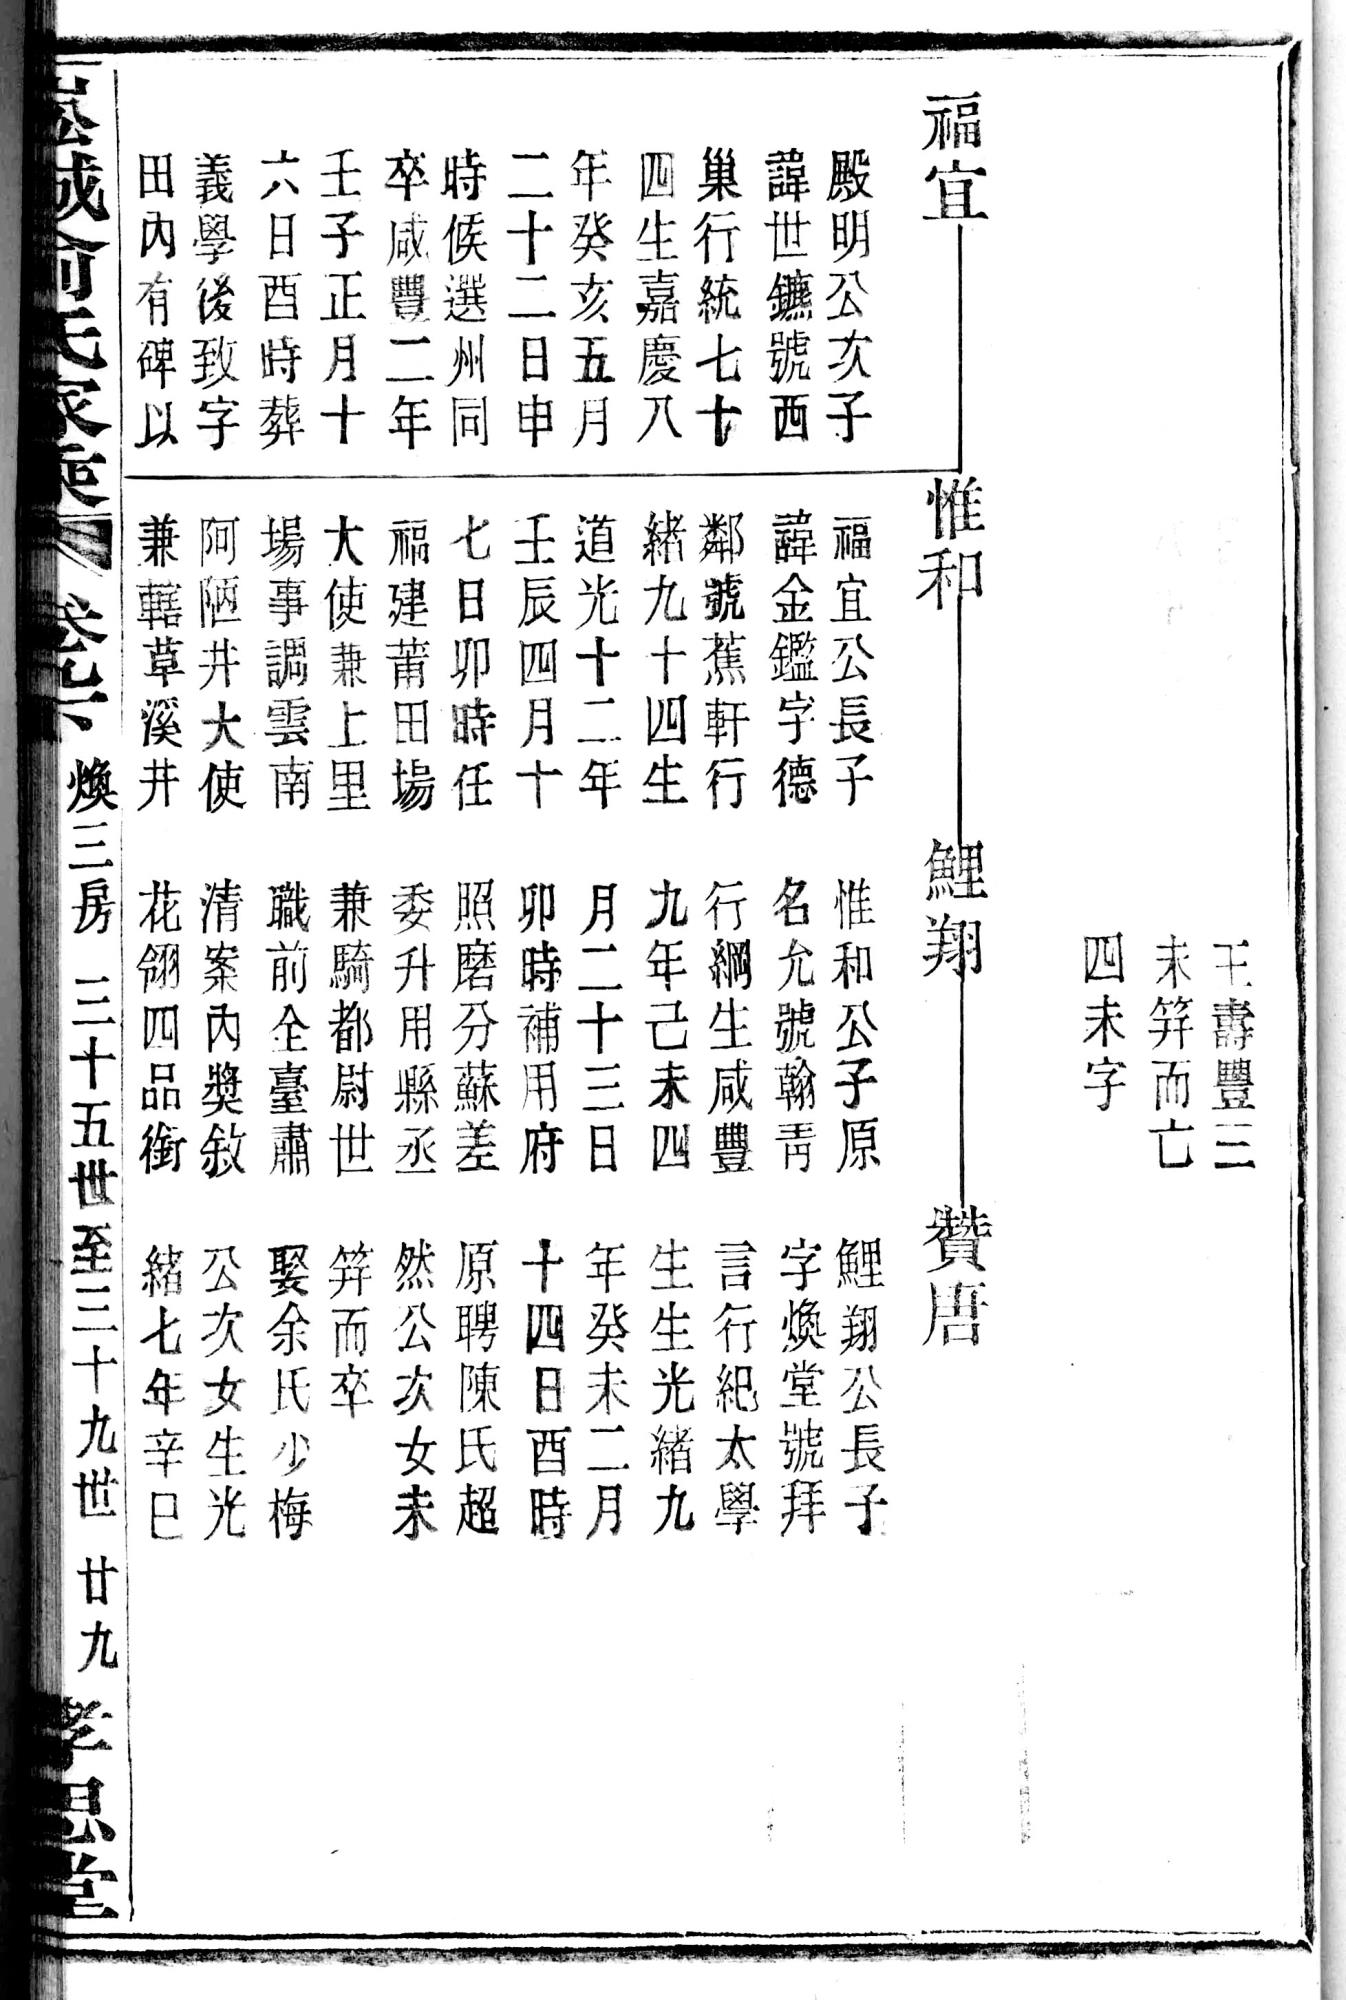 王壽豐三
未笄而亡
四未字
福宜
殿明公次子
諱世鑣號西
巢行統七十
四生嘉慶八
年癸亥五月
二十二日申
時候選州同
卒咸豐二年
壬子正月十
六日酉時葬
義學後致字
田內有碑以
惟和
福宜公長子
諱金鑑字德
鄰號蕉軒行
緒九十四生
道光十二年
壬辰四月十
七日卯時任
福建莆田場
大使兼上里
場事調雲南
阿陋井大使
兼轄草溪井
鯉翔
惟和公子原
名允號翰青
行綱生咸豐
九年己未四
月二十三日
卯時補用府
照磨分蘇差
委升用縣丞
兼騎都尉世
職前全臺肅
清案內獎敘
花翎四品銜
贊唐
鯉翔公長子
字煥堂號拜
言行紀太學
生生光緒九
年癸未二月
十四日酉時
原聘陳氏超
然公次女未
笄而卒
娶余氏少梅
公次女生光
緒七年辛巳
氏家乘 卷九下 煥三房 三十五世至三十九世 廿九 孝思堂